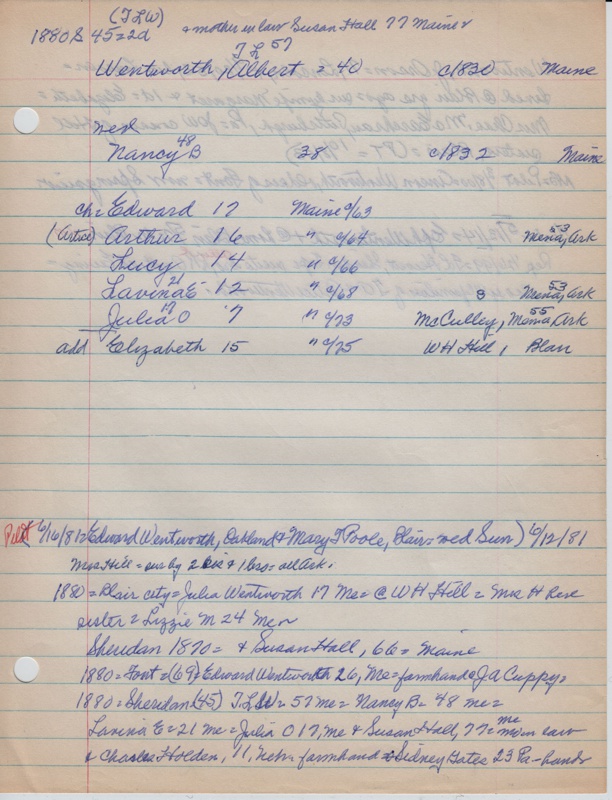 (TLW)
1880S 45=2d & mother in law Susan Hall 77 Maine &
TL 57
Wentworth, Albert = 40 c1830 Maine
wed
48
Nancy B 38 c1832 Maine
ch= Edward 17 Maine c/63
(Artice) Arthur 16 " c/64 Mena, Ark 53
Lucy 14 " c/66
21
Lavina E 12 " c/68 8 Mena, Ark 53
17
Julia O 7 " c/73 McCulley, Mena, Ark 55
add Elizabeth 15 " c/75 WH Hill, Blair
Pilot (6/16/81= Edward Wentworth, Oakland & Mary T Poole, Blair= wed Sun) 6/12/81
Mrs Hill = sur by 2 sis & 1 bro = all Ark.
1880 = Blair city = Julia Wentworth 17 Me = @ WH Hill = Mrs H
sister = Lizzie M 24 Me
Sheridan 1870 = & Susan Hall, 66 = Maine
1880 = Font = (69) Edward Wentworth 26, Me = farmhand @ JA Cuppy =
1880 = Sheridan (45) TLW = 57 me = Nancy B = 48 me =
Lavina E = 21 me = Julia O 17, me & Susan Hall, 77 = me mo in law
& Charles Holden, 11, Neb = farmhand & Sidney Gates 23 Pa - hands